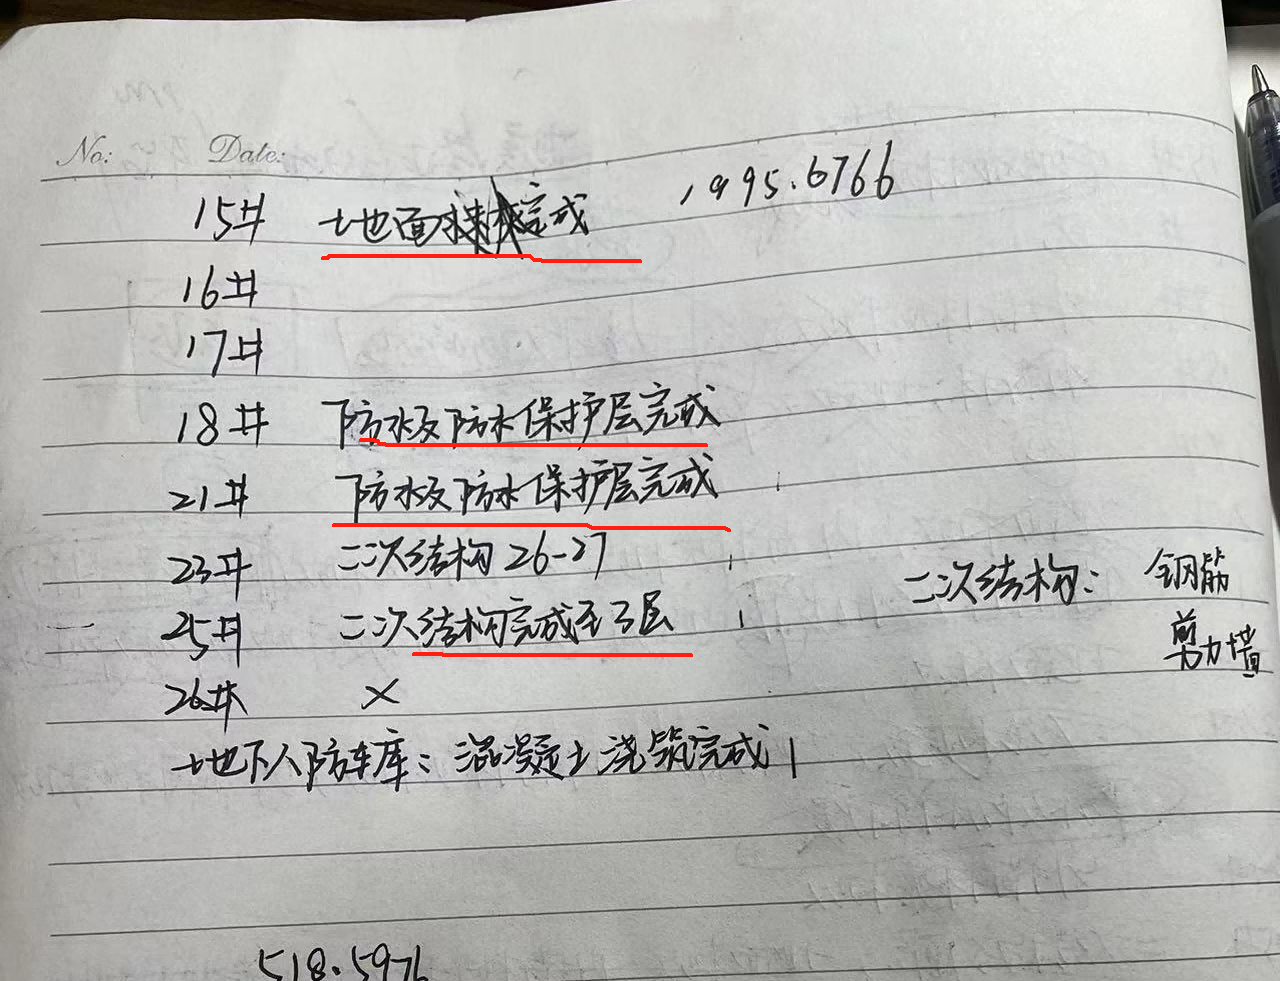 No: Date:
15# 地面完成 1995.6766
16#
17#
18# 防水及防水保护层完成
21# 防水及防水保护层完成
23# 二次结构26-27
二次结构: 钢筋
25# 二次结构完成至3层
剪力墙
26# ×
地下人防车库: 混凝土浇筑完成
518.5976